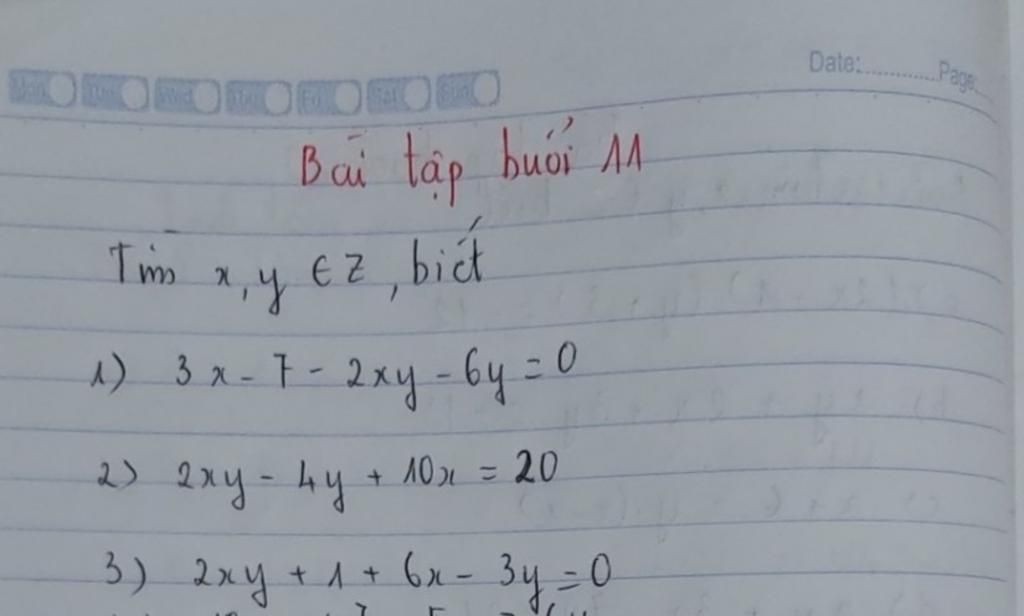 Date:............Page
Mon Tue Wed Thu Fri Sat Sun
Bài tập buổi 11
Tìm x, y ∈ Z, biết
1) 3x - 7 - 2xy - 6y = 0
2) 2xy - 4y + 10x = 20
3) 2xy + 1 + 6x - 3y = 0